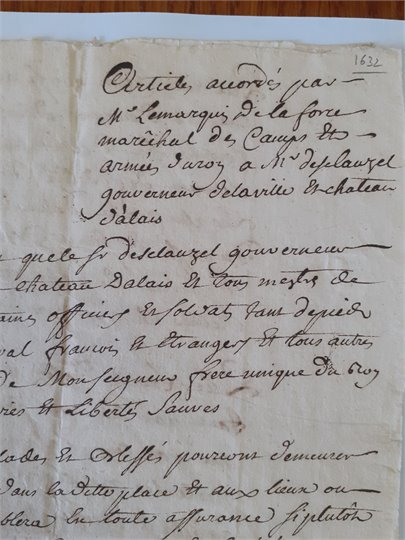 1632
Articles accordés par
Mr. Lemarquis de la force
maréchal des Camps Et
armées duroy a Mr. desclauzel
gouverneur delaville Et chateau
d'alais
quele sr desclauzel gouverneur
chateau Dalais Et tous mestres de
officiers Et soldats tant depied
val francois Et Etrangers Et tous autres
de Monseigneur frere unique du Roy
Et Libertés Sauves
lades Et Blessés pourront demeurer
dans ladite place et aux lieux ou
blera En toute assurance siplutôt